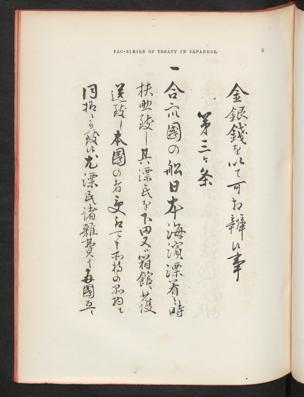 FAC-SIMILE OF TREATY IN JAPANESE.
金銀錢を以て可相辨候事
第三ヶ条
一合衆國の船日本海濱漂着の時
扶助致し其漂民を下田又は箱館に護
送致し本國の者受取可申所持の品物も
同様に可致候尤漂民諸雑費は両國互に